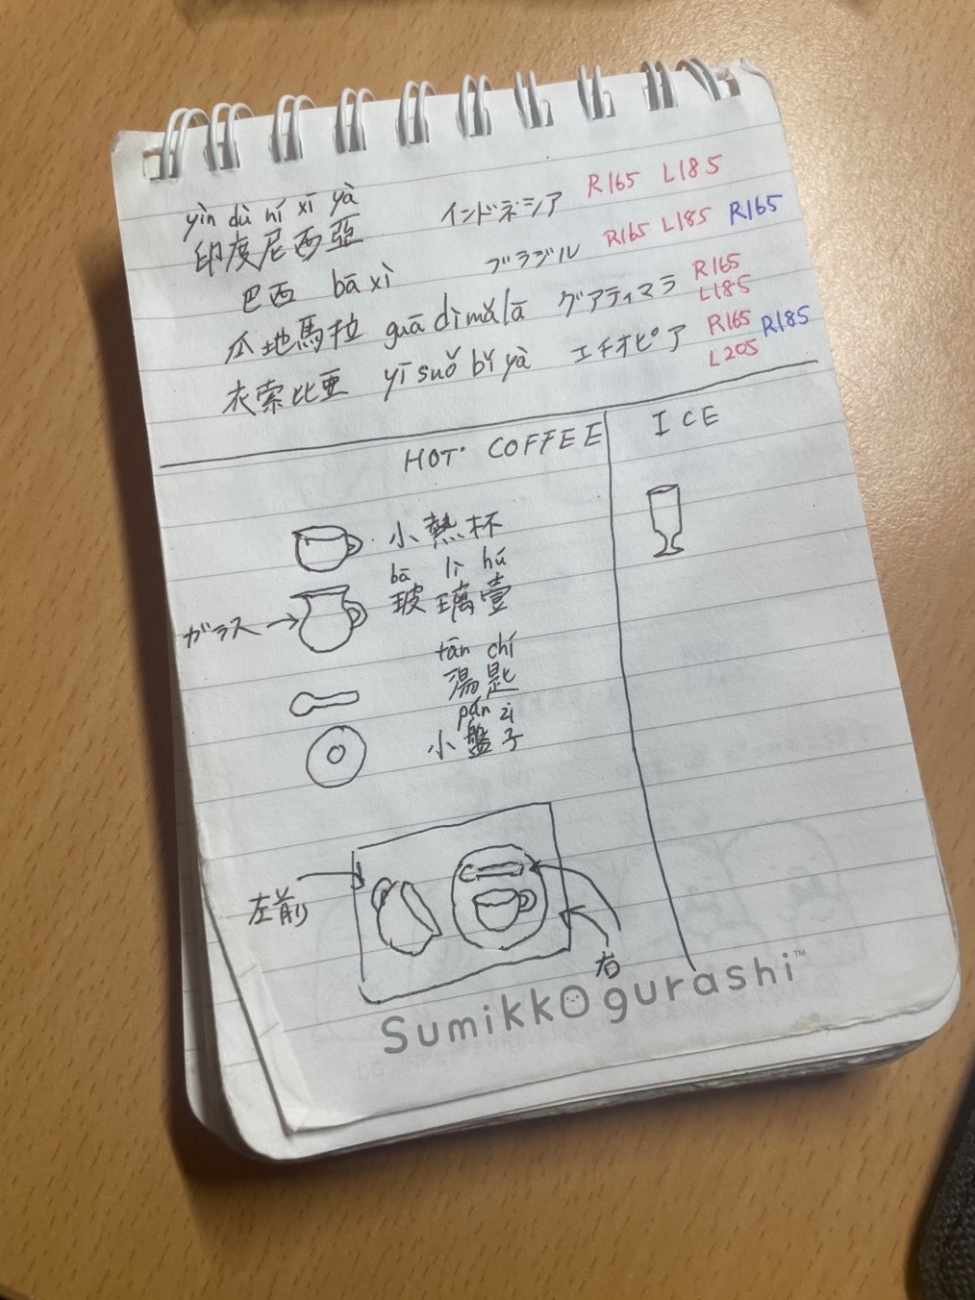 yìn dù ní xī yà
印度尼西亞 インドネシア R165 L185
巴西 bā xì ブラジル R165 L185 R165
瓜地馬拉 guā dì mǎ lā グアティマラ R165 L185
衣索比亜 yī suǒ bǐ yà エチオピア R165 L205 R185
HOT COFFEE
ICE
小熱杯
bā lì hú
ガラス 玻璃壹
tān chí
湯匙
pán zi
小盤子
左前
右
Sumikkogurashi™